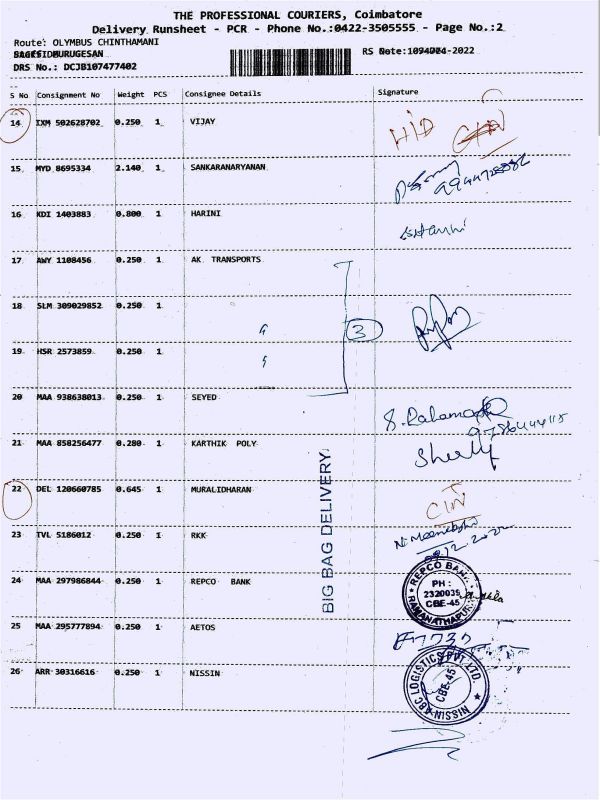 THE PROFESSIONAL COURIERS, Coimbatore
Delivery Runsheet - PCR - Phone No.:0422-3505555 - Page No.:2
Route: OLYMBUS CHINTHAMANI
DRS No.: DCJB107477402
S No Consignment No Weight PCS Consignee Details Signature
14 IXM 502628702 0.250 1 VIJAY
15 MYD 8695334 2.140 1 SANKARANARYANAN
16 KDI 1403883 0.800 1 HARINI
17 AWY 1108456 0.250 1 AK TRANSPORTS
18 SLM 309029852 0.250 1
3
19 HSR 2573859 0.250 1
20 MAA 938638013 0.250 1 SEYED
21 MAA 858256477 0.280 1 KARTHIK POLY
22 DEL 120660785 0.645 1 MURALIDHARAN
23 TVL 5186012 0.250 1 RKK
24 MAA 297986844 0.250 1 REPCO BANK
25 MAA 295777894 0.250 1 AETOS
26 ARR 30316616 0.250 1 NISSIN
BIG BAG DELIVERY
REPCO BANK
PH :
2320039
CBE-45
RAMANATHAPURAM
NISSIN ABC LOGISTICS PVT. LTD.
CBE-45